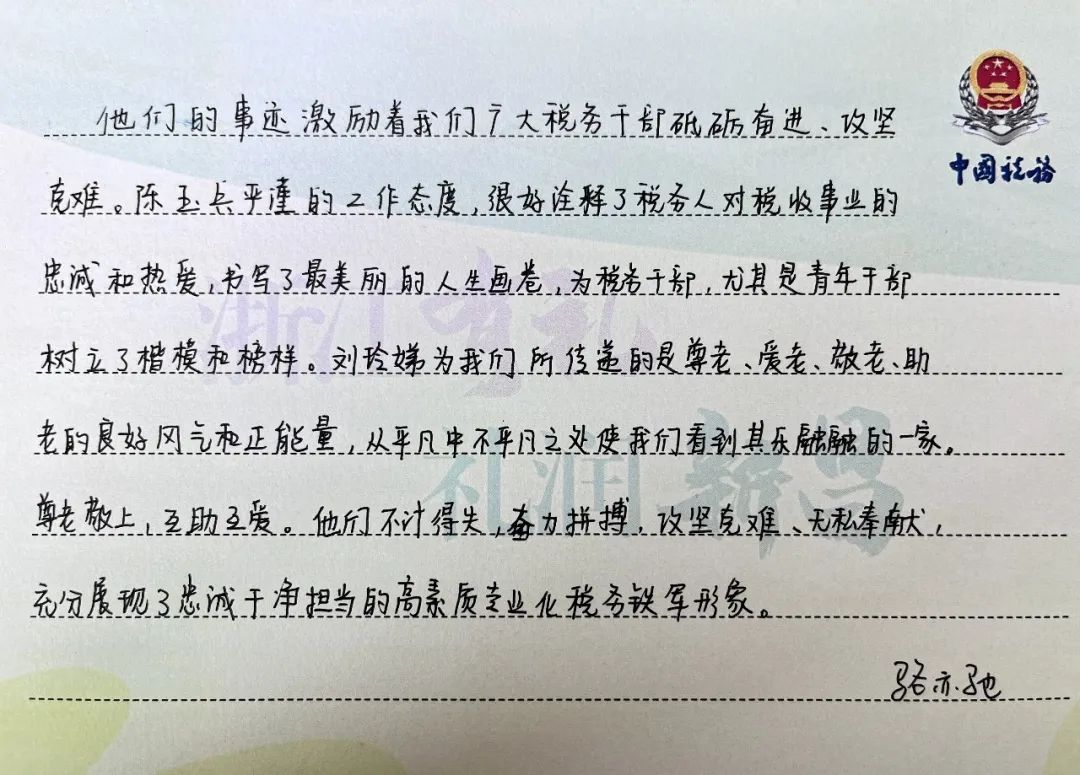 他们的事迹激励着我们广大税务干部砥砺奋进、攻坚
克难。陈玉兵严谨的工作态度,很好诠释了税务人对税收事业的
忠诚和热爱,书写了最美丽的人生画卷,为税务干部,尤其是青年干部
树立了楷模和榜样。刘玲娣为我们所传递的是尊老、爱老、敬老、助
老的良好风气和正能量,从平凡中不平凡之处使我们看到其乐融融的一家。
尊老敬上,互助互爱。他们不计得失,奋力拼搏,攻坚克难、无私奉献,
充分展现了忠诚干净担当的高素质专业化税务铁军形象。
骆亦驰
中国税务
浙江有礼
礼润